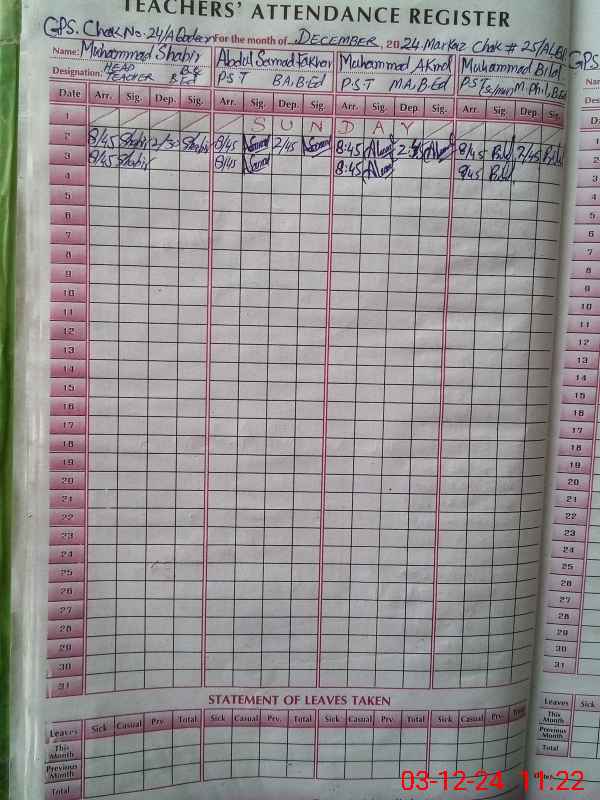 TEACHERS' ATTENDANCE REGISTER
GPS. Chak No. 24/A For the month of DECEMBER, 2024 Markaz Chak # 25/A
Name: Muhammad Shabir Abdul Samad Fakhar Muhammad Akmal Muhammad Bilal
Designation: HEAD TEACHER B.Ed P.S.T B.A, B.Ed P.S.T M.A, B.Ed P.S.T M.Phil, B.Ed
Date Arr. Sig. Dep. Sig. Arr. Sig. Dep. Sig. Arr. Sig. Dep. Sig. Arr. Sig. Dep. Sig.
1 SUNDAY
2 8/45 Shabir 2/30 Shabir 8/45 2/45 8:45 8/45 Bilal 2/45 Bilal
3 8/45 Shabir 8/45 8:45 8/45 Bilal
4
5
6
7
8
9
10
11
12
13
14
15
16
17
18
19
20
21
22
23
24
25
26
27
28
29
30
31
STATEMENT OF LEAVES TAKEN
Leaves Sick Casual Prv. Total Sick Casual Prv. Total Sick Casual Prv. Total Sick Casual Prv. Total
This Month
Previous Month
Total
GPS
Name:
Date
1
2
3
4
5
6
7
8
9
10
11
12
13
14
15
16
17
18
19
20
21
22
23
24
25
26
27
28
29
30
31
Leaves Sick
This Month
Previous Month
Total
03-12-24 11.22